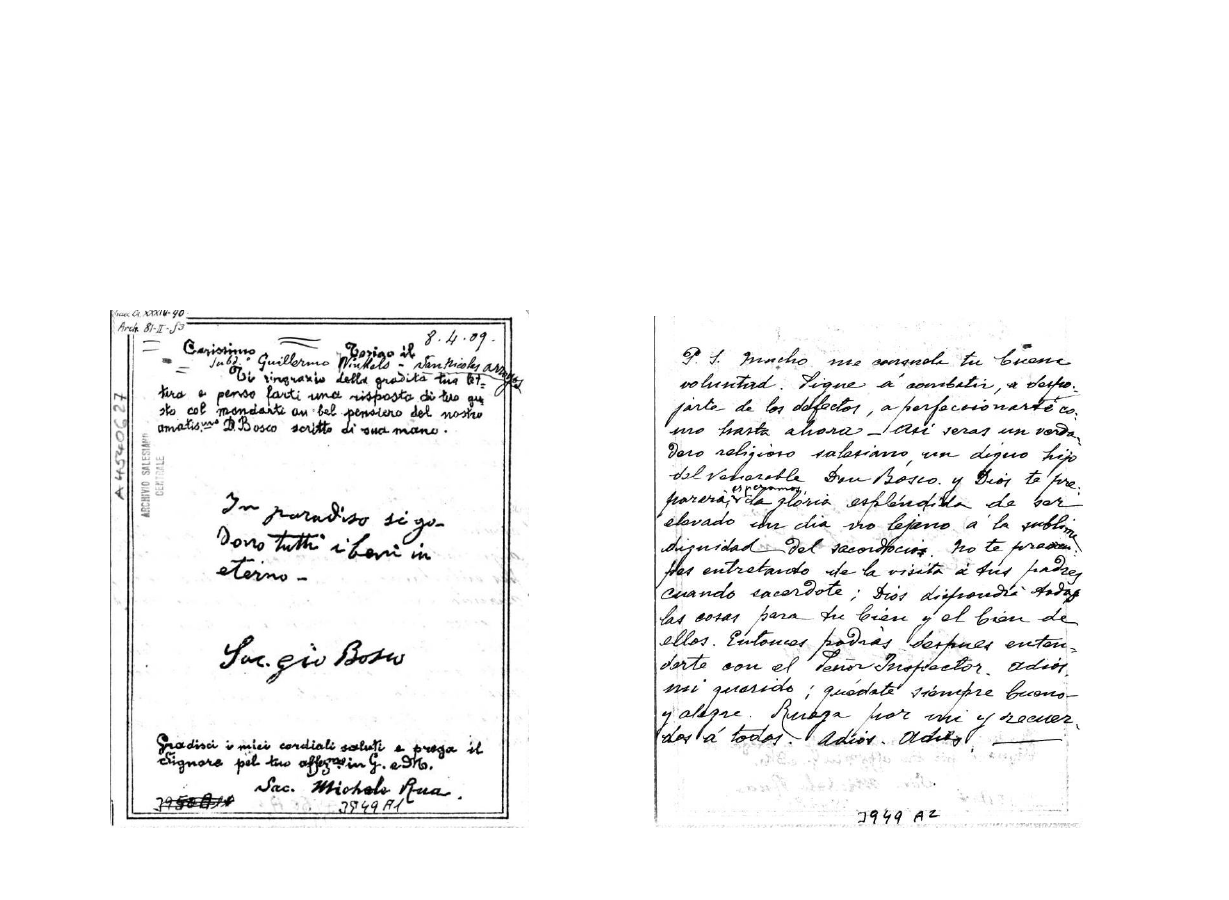 Arch. 81-II-53
8.4.09.
Carissimo Torigo il
Subd. Guillermo Vinkels - San Nicolas
Ti ringrazio della gradita tua let=
tera e penso farti una risposta di tuo gu
sto col mandarti un bel pensiero del nostro
amatis.mo D. Bosco scritto di sua mano.
A4540627
ARCHIVIO SALESIANO
CENTRALE
In paradiso si go-
dono tutti i beni in
eterno -
Sac. Gio Bosco
Gradisci i miei cordiali saluti e prega il
Signore pel tuo affez.mo in G. e M.
Sac. Michele Rua.
3949 A1
P. S. Mucho me consuela tu buena
voluntad. Sigue a combatir, a despo-
jarte de los defectos, a perfeccionarte co-
mo hasta ahora - Asi seras un verda-
dero religioso salesiano, un digno hijo
del Venerable Don Bosco. y Dios te pre-
parera, esperamos, la glória espléndida de ser
elevado un dia no lejano á la sublime
dignidad del sacerdocio. No te preocu-
pes entretanto de la visita á tus padres
cuando sacerdote; Dios dispondrá todas
las cosas para tu bien y el bien de
ellos. Entonces podrás despues enten-
derte con el Señor Inspector. Adios,
mi querido; quédate siempre bueno
y alegre. Ruega por mi y recuer-
dos á todos. - Adios. Adios.
3949 A2